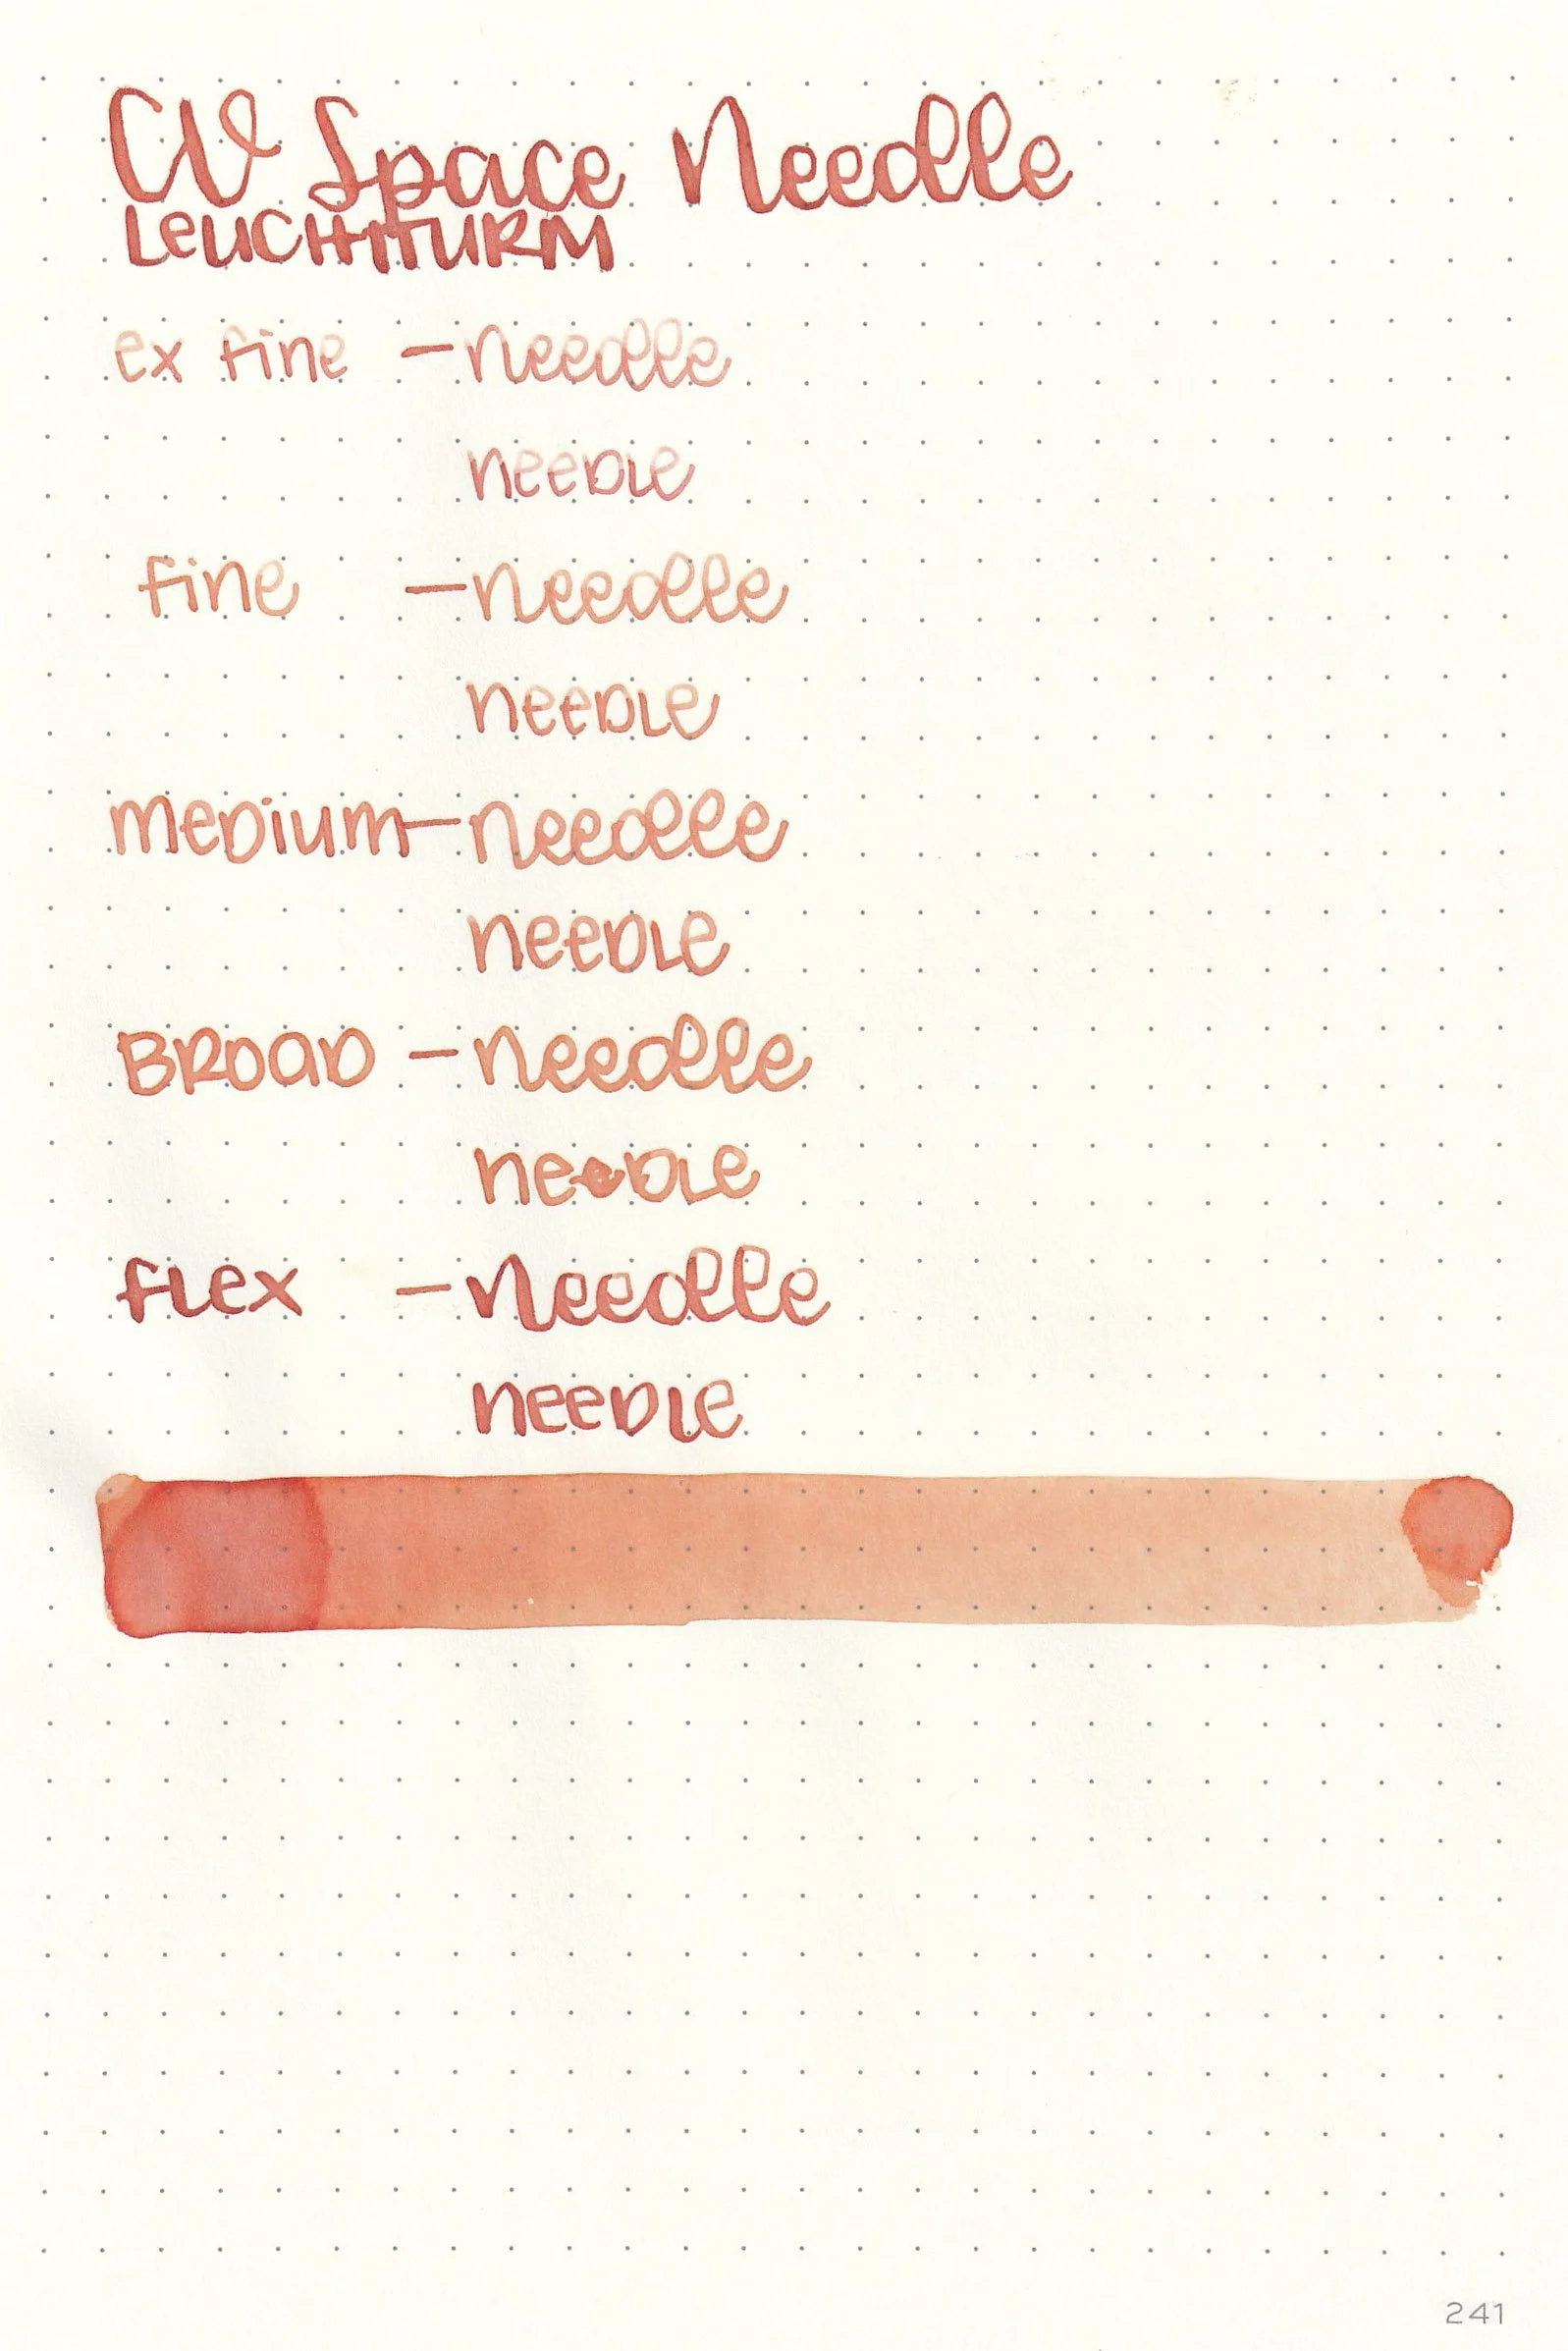 CV Space Needle
LEUCHTTURM
ex fine - needle
needle
fine - needle
needle
medium - needle
needle
BROAD - needle
needle
flex - needle
needle
241